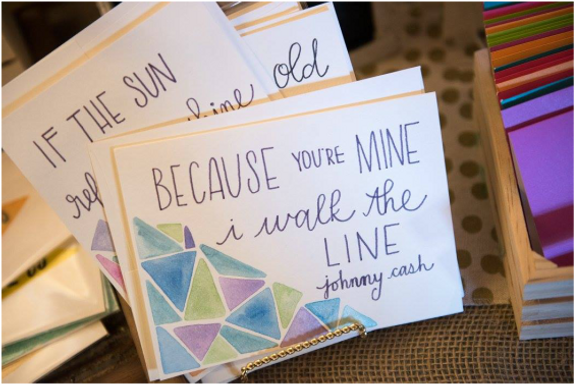 BECAUSE YOU'RE MINE
i walk the
LINE
johnny cash
IF THE SUN
old